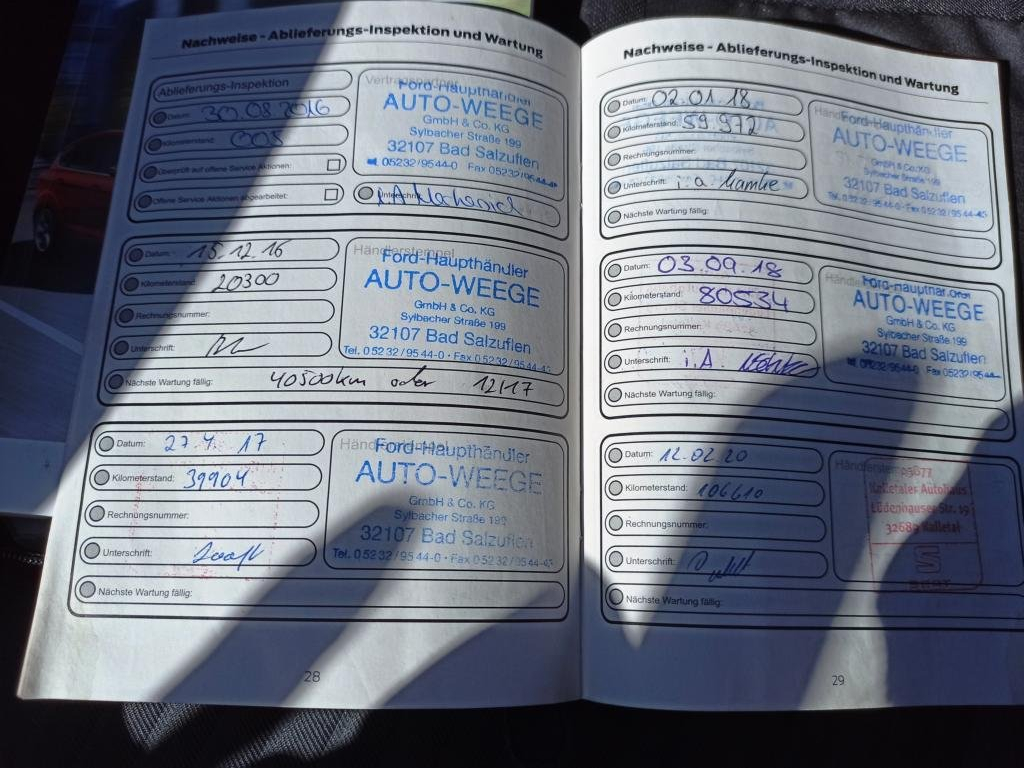 Nachweise - Ablieferungs-Inspektion und Wartung
Ablieferungs-Inspektion
Datum: 30.08.2016
Kilometerstand: 005
Überprüft auf offene Service Aktionen:
Offene Service Aktionen abgearbeitet:
Vertragspartner
Ford-Haupthändler
AUTO-WEEGE
GmbH & Co. KG
Sylbacher Straße 199
32107 Bad Salzuflen
05232/9544-0 Fax 05232/9544-45
Unterschrift:
Datum: 15.12.16
Kilometerstand: 20300
Rechnungsnummer:
Unterschrift:
Nächste Wartung fällig: 40500km oder 12/17
Händlerstempel
Ford-Haupthändler
AUTO-WEEGE
GmbH & Co. KG
Sylbacher Straße 199
32107 Bad Salzuflen
Tel. 05232/9544-0 · Fax 05232/9544-45
Datum: 27.4.17
Kilometerstand: 39904
Rechnungsnummer:
Unterschrift:
Nächste Wartung fällig:
Händlerstempel
Ford-Haupthändler
AUTO-WEEGE
GmbH & Co. KG
Sylbacher Straße 199
32107 Bad Salzuflen
Tel. 05232/9544-0 · Fax 05232/9544-45
28
Nachweise - Ablieferungs-Inspektion und Wartung
Datum: 02.01.18
Kilometerstand: 59.972
Rechnungsnummer:
Unterschrift: i.a.
Nächste Wartung fällig:
Ford-Haupthändler
AUTO-WEEGE
GmbH & Co. KG
Sylbacher Straße 199
32107 Bad Salzuflen
Tel. 05232/9544-0 · Fax 05232/9544-45
Datum: 03.09.18
Kilometerstand: 80534
Rechnungsnummer:
Unterschrift: i.A.
Nächste Wartung fällig:
Ford-Haupthändler
AUTO-WEEGE
GmbH & Co. KG
Sylbacher Straße 199
32107 Bad Salzuflen
05232/9544-0 Fax 05232/9544-45
Datum: 12.02.20
Kilometerstand: 106610
Rechnungsnummer:
Unterschrift:
Nächste Wartung fällig:
Händlerstempel
Kalletaler Autohaus
Lüdenhauser Str. 19
32689 Kalletal
SEAT
29